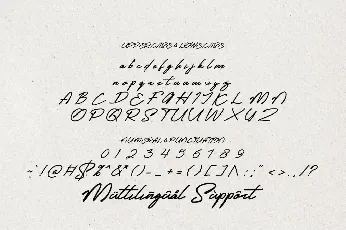 UPPERCASE & LOWERCASE
a b c d e f g h i j k l m
n o p q r s t u v w x y z
A B C D E F G H I J K L M N
O P Q R S T U V W X Y Z
NUMERAL & PUNCTUATION
0 1 2 3 4 5 6 7 8 9
~`!@#$%^&*()-_+={}[]|\:;"<>,./?
Multilingual Support